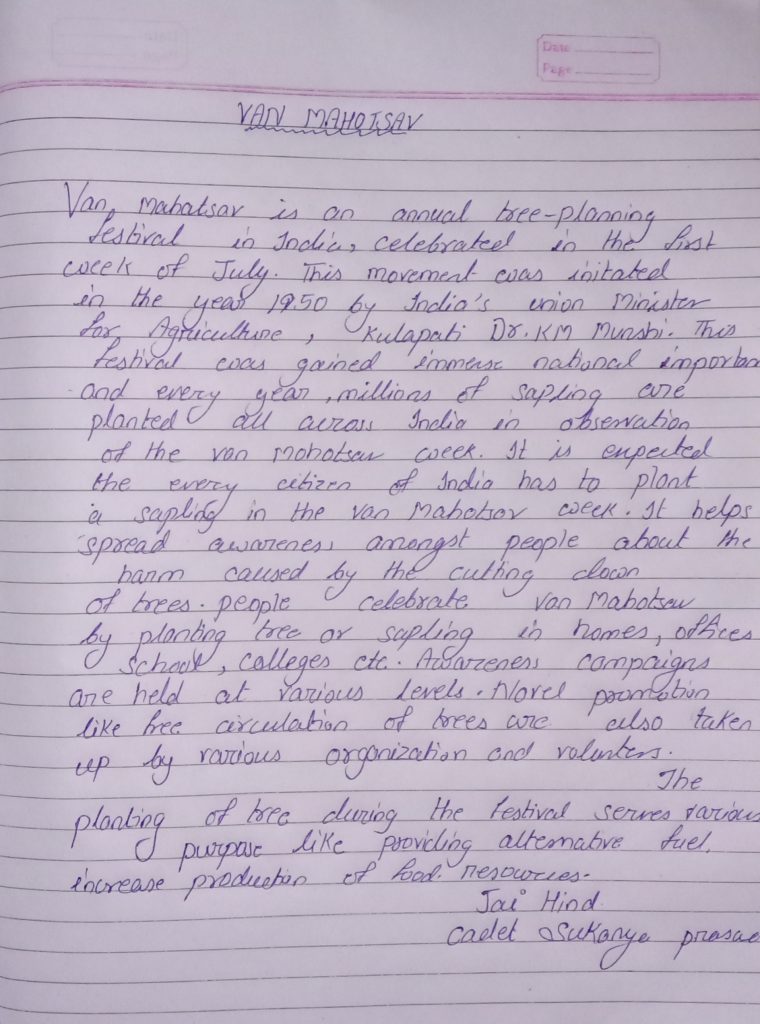 Date
Page
VAN MAHOTSAV
Van Mahatsav is an annual tree-planning
festival in India, celebrated in the first
week of July. This movement was initated
in the year 1950 by India's union Minister
for Agriculture, Kulapati Dr. KM Munshi. This
festival was gained immerse national importan
and every year, millions of sapling are
planted all across India in observation
of the van Mohotsav week. It is expected
the every citizen of India has to plant
a sapling in the van Mahotsov week. It helps
spread awareness amongst people about the
harm caused by the cutting down
of trees. people celebrate van Mahotsav
by planting tree or sapling in homes, offices
school, colleges etc. Awareness campaigns
are held at various levels. Novel promotion
like free circulation of trees are also taken
up by various organization and volunters.
The
planting of tree during the festival serves various
purpose like providing alternative fuel,
increase production of food resources.
Jai Hind
Cadet Sukanya prasa